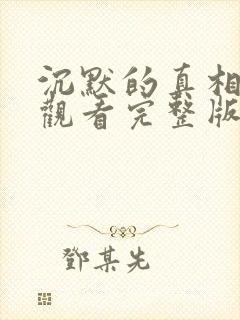 沉默的真相
觀看完整版
鄧某先